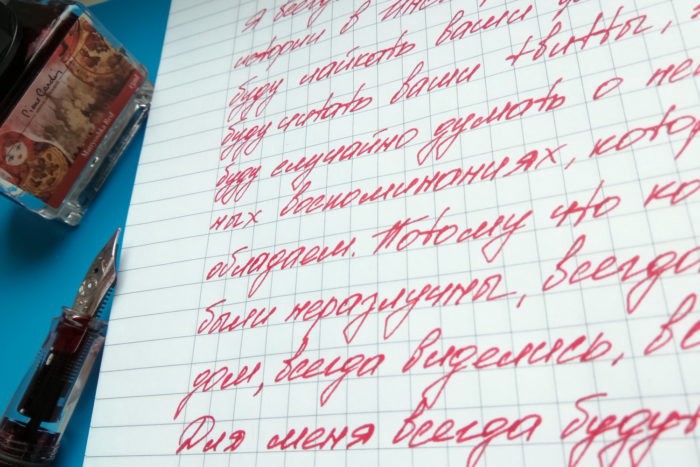 Я всегд
истории в Инс
буду лайкать ваши
буду читать ваши твитты,
буду случайно думать о
ных воспоминаниях, котор
обладаем. Потому что ко
были неразлучны, всегда
дом, всегда виделись, вс
Для меня всегда будут
Pierre Cardin